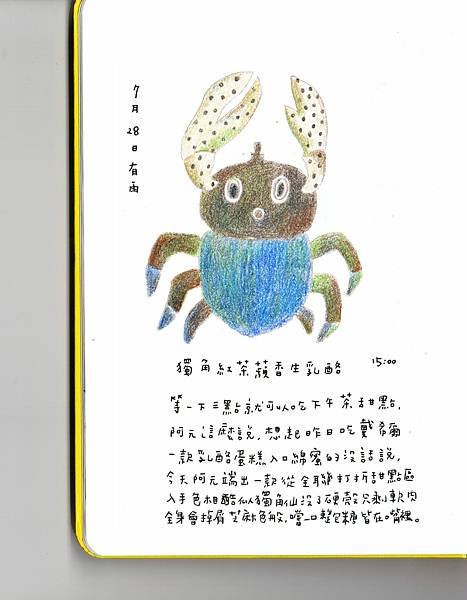 7月28日有雨
獨角紅茶蘋香生乳酪 15:00
等一下三點就可以吃下午茶甜點,
阿元這麼說,想起昨日吃戴希爾
一款乳酪蛋糕入口綿蜜的沒話說,
今天阿元端出一款從全聯打折甜點區
入手色相酷似獨角仙沒了硬殼只剩軟肉
全身會掉屑芝麻色般,嚐一口整包糖皆在嘴裡。